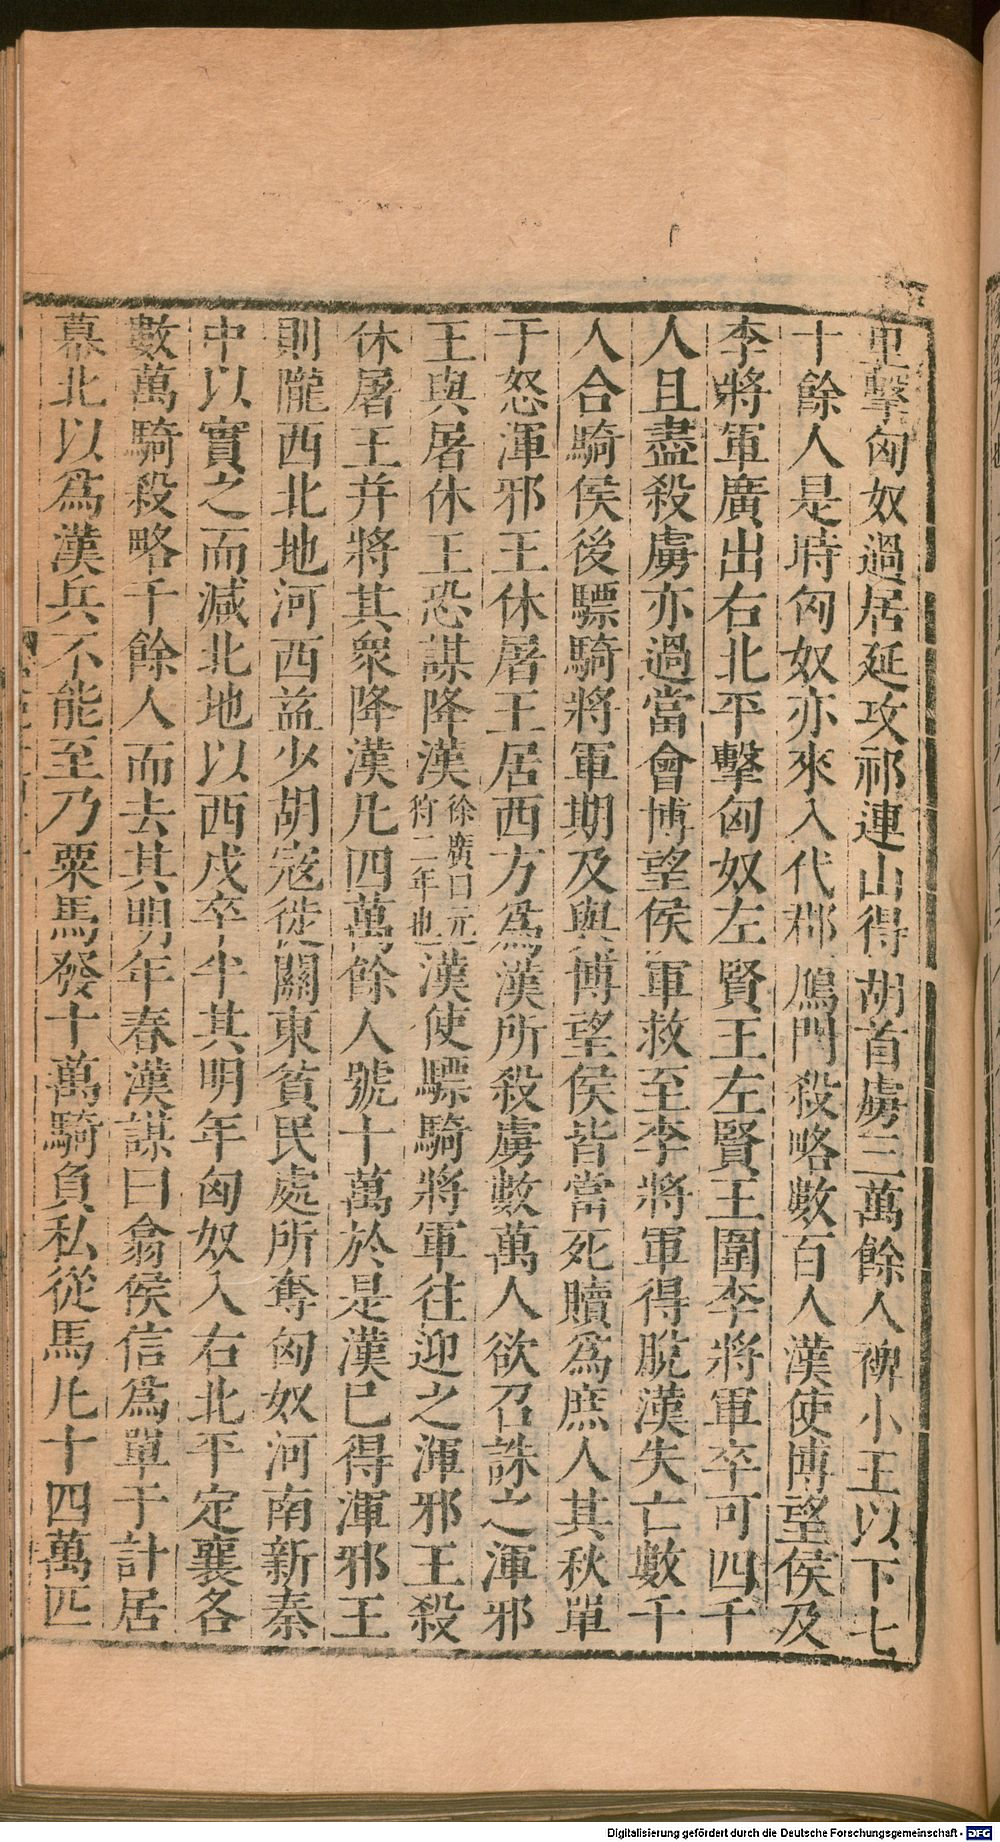 里擊匈奴過居延攻祁連山得胡首虜三萬餘人裨小王以下七
十餘人是時匈奴亦來入代郡鴈門殺略數百人漢使博望侯及
李將軍廣出右北平擊匈奴左賢王左賢王圍李將軍卒可四千
人且盡殺虜亦過當會博望侯軍救至李將軍得脫漢失亡數千
人合騎侯後驃騎將軍期及與博望侯皆當死贖爲庶人其秋單
于怒渾邪王休屠王居西方爲漢所殺虜數萬人欲召誅之渾邪
王與屠休王恐謀降漢徐廣曰元狩二年也漢使驃騎將軍往迎之渾邪王殺
休屠王并將其衆降漢凡四萬餘人號十萬於是漢已得渾邪王
則隴西北地河西益少胡寇徙關東貧民處所奪匈奴河南新秦
中以實之而減北地以西戍卒半其明年匈奴入右北平定襄各
數萬騎殺略千餘人而去其明年春漢謀曰翕侯信爲單于計居
幕北以爲漢兵不能至乃粟馬發十萬騎負私從馬凡十四萬匹
Digitalisierung gefördert durch die Deutsche Forschungsgemeinschaft - DFG